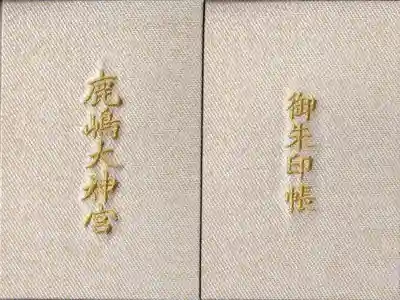 鹿嶋大神宮
御朱印帳